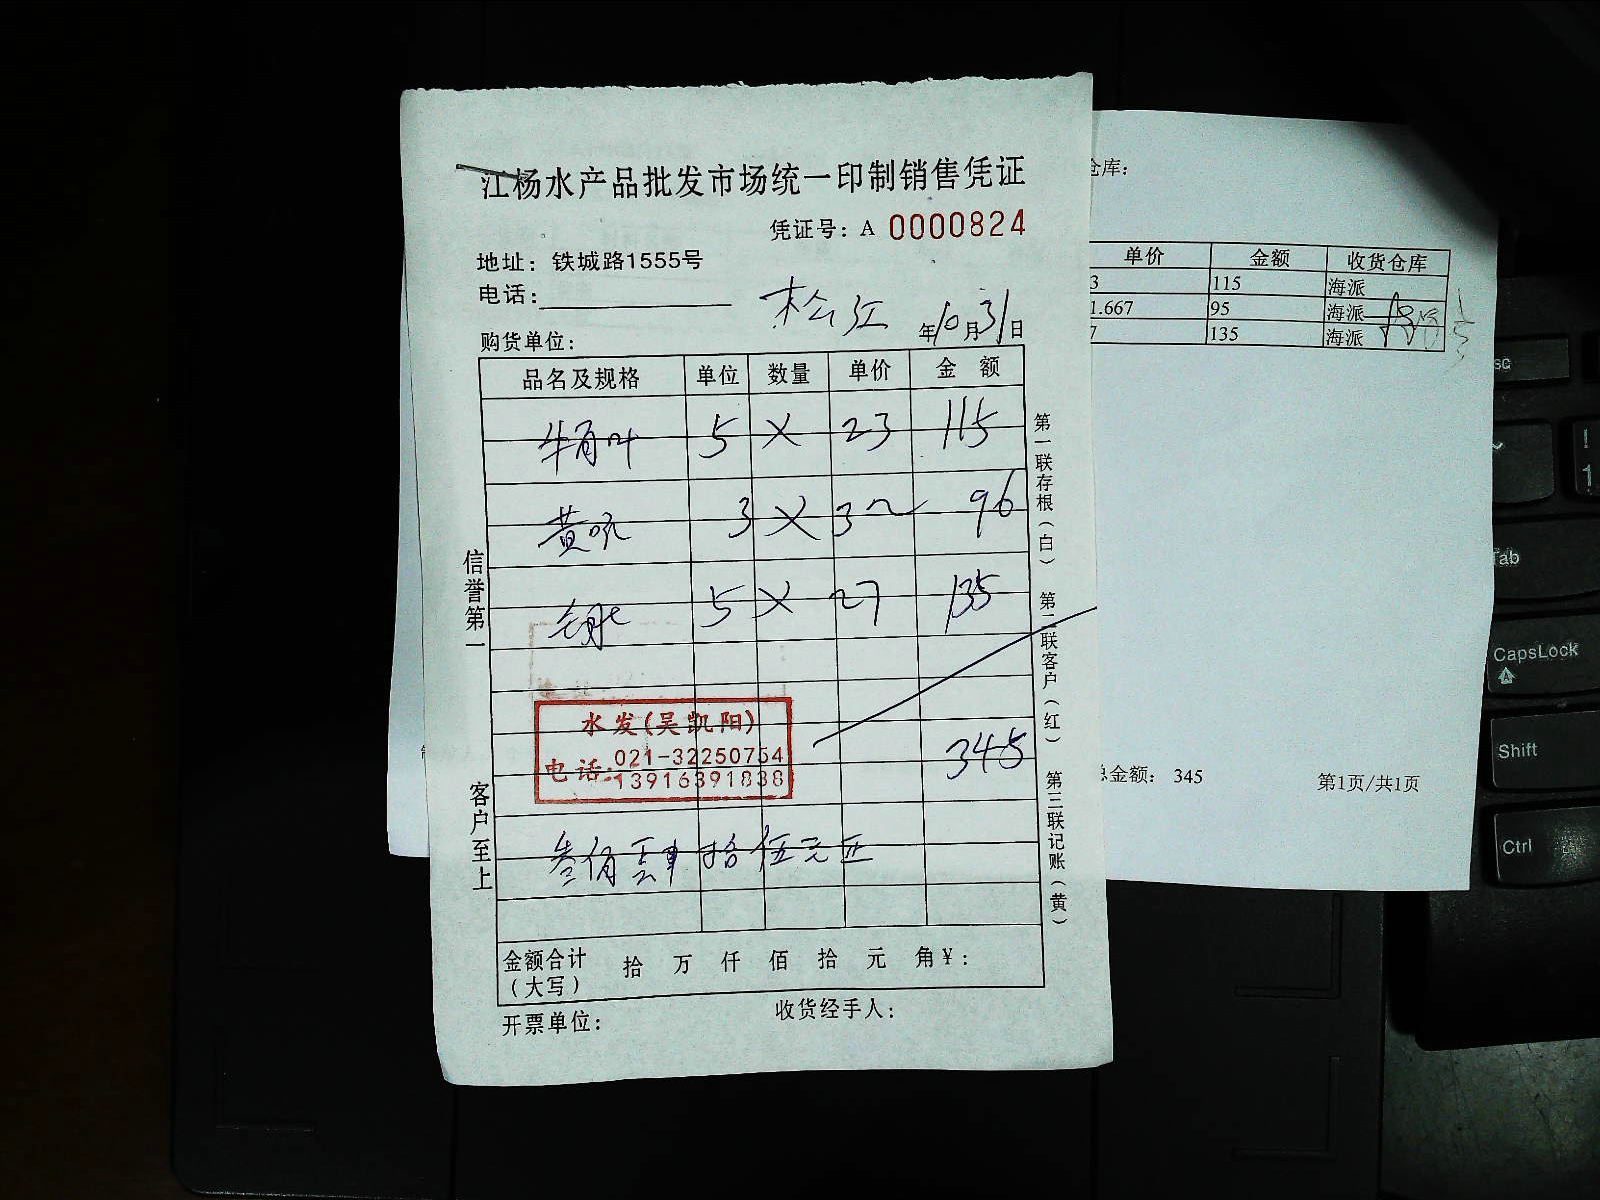 江杨水产品批发市场统一印制销售凭证
凭证号：A 0000824
地址：铁城路1555号
电话：
松江
年10月31日
购货单位：
品名及规格 单位 数量 单价 金 额
牛百叶 5 × 23 115
黄喉 3 × 32 96
5 × 27 135
345
水发(吴凯阳)
电话：021-32250754
13916391838
叁佰肆拾伍元正
金额合计（大写） 拾 万 仟 佰 拾 元 角 ¥：
开票单位： 收货经手人：
信誉第一
客户至上
第一联存根（白） 第二联客户（红） 第三联记账（黄）
仓库：
单价 金额 收货仓库
3 115 海派
1.667 95 海派
7 135 海派
总金额： 345
第1页/共1页
Tab
CapsLock
Shift
Ctrl